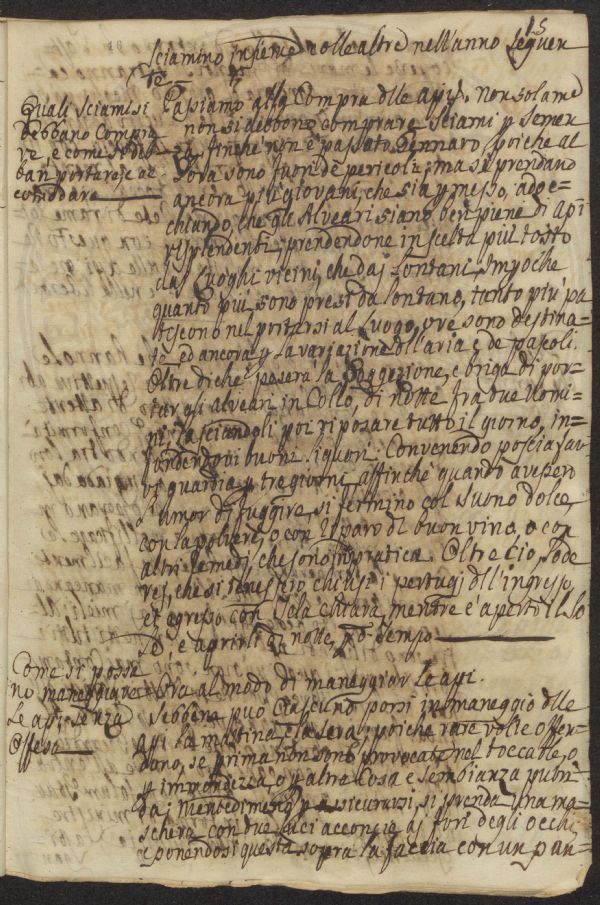 15
sciamino insieme colle altre nell'anno seguen
te.
Quali sciami si
debbano compra
re, e come si deb
ban portare, e ac
comodare
Passiamo alla Compra dlle api. Non solamē
non si debbono comprare sciami p semen
za, finchè non è passato Gennaro, poiche al
l'ora sono fuori de pericoli; ma si prendano
ancora più giovani, che sia pmesso, adoc=
chiando, che gli Alveari siano ben pieni di api
risplendenti; prendendone in scelta più tosto
da luoghi vicini, che dai lontani. Impoche
quanto più sono presi da lontano, tanto più pa
tiscono nel portarsi al luogo, ove sono destina=
te, ed ancora p la variazione dll'aria e de pascoli.
Oltre di che peserà la soggezione, e briga di por=
tar gli Alveari in Collo, di notte fra due uomi=
ni; lasciandoli poi riposare tutto il giorno, in=
fondendovi buoni liquori. Convenendo poscia far
vi guardia p tre giorni, affinchè quando avessero
umor di fuggire, si fermino col suono dolce,
con la polvere, o con di buon vino, o con
altri remedj, che sono in pratica. Oltre ciò
che si tenessero chiusi i pertugj dll'ingresso,
et egresso con tela chiara mentre è aperto il So
le, e aprirli di notte, p tempo
Come si possa
no maneggiare
le api senza
offesa
Ora al modo di maneggiar le api.
Sebbene può ciascuno porsi in maneggio dlle
Api la mattina, e la sera; poiche rare volte offen=
dono, se prima non sono provocate nel toccarle, o
p immondezza, o p altra cosa e sembianza putri
da; p assicurarsi, si prenda una ma=
schera con due luci acconcie ai fori degli occhi,
e ponendosi questa sopra la faccia con un pan=